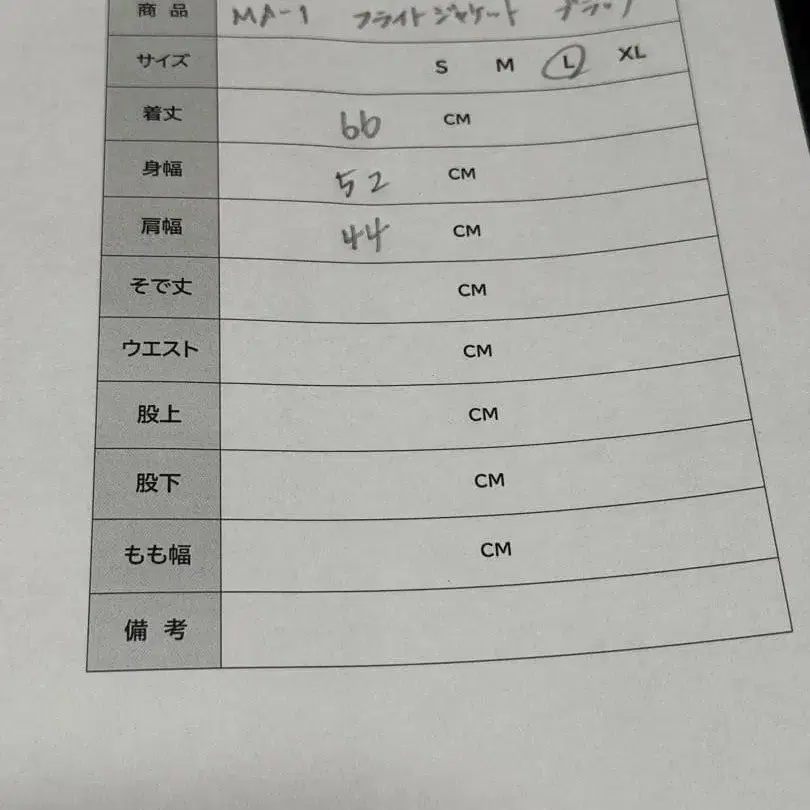 商品 MA-1 フライトジャケット ブラック
サイズ S M L XL
着丈 66 CM
身幅 52 CM
肩幅 44 CM
そで丈 CM
ウエスト CM
股上 CM
股下 CM
もも幅 CM
備考